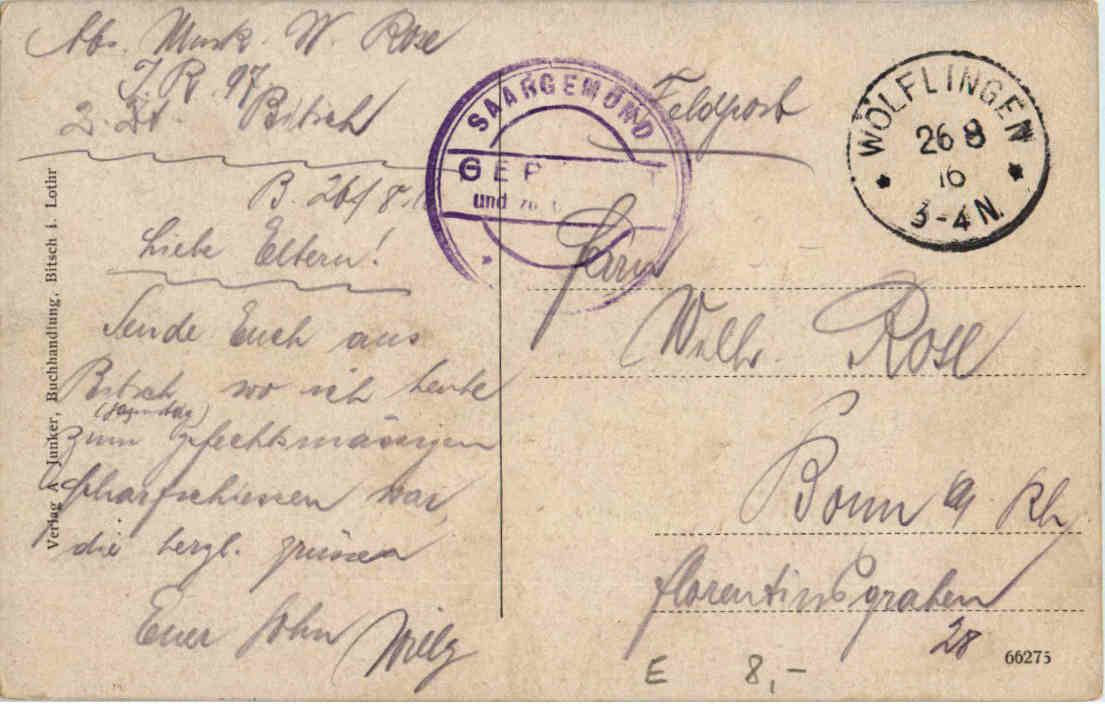 Abs. Musk. W. Rose
I.R. 97.
Bitsch
Feldpost
SAARGEMÜND
GEP
und zu
WÖLFLINGEN
26 8
16
3-4 N.
B. 26/8.
Liebe Eltern!
Sende Euch aus
Bitsch, wo ich heute
zum gefechtsmässigen
Scharfschiessen war,
die herzl. Grüsse
Euer Sohn Willy
Herrn
Wilh. Rose
Bonn a/ Rh
Florentiusgraben
28
Verlag A. Junker, Buchhandlung, Bitsch i. Lothr
66275
E 8,-